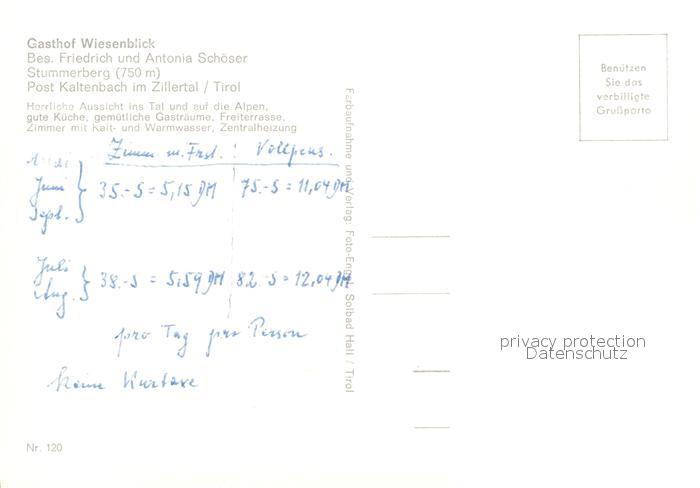 Gasthof Wiesenblick
Bes. Friedrich und Antonia Schöser
Stummerberg (750 m)
Post Kaltenbach im Zillertal / Tirol
Herrliche Aussicht ins Tal und auf die Alpen,
gute Küche, gemütliche Gasträume, Freiterrasse,
Zimmer mit Kalt- und Warmwasser, Zentralheizung
Zimm m. Frst. : Vollpens.
Juni 35.-S = 5,15 DM 75.-S = 11,04 DM
Sept.
Juli 38.-S = 5,59 DM 82.-S = 12,04 DM
Aug.
pro Tag pro Person
keine Kurtaxe
Nr. 120
Farbaufnahme und Verlag: Foto-Enge Solbad Hall / Tirol
Benützen
Sie das
verbilligte
Grußporto
privacy protection
Datenschutz